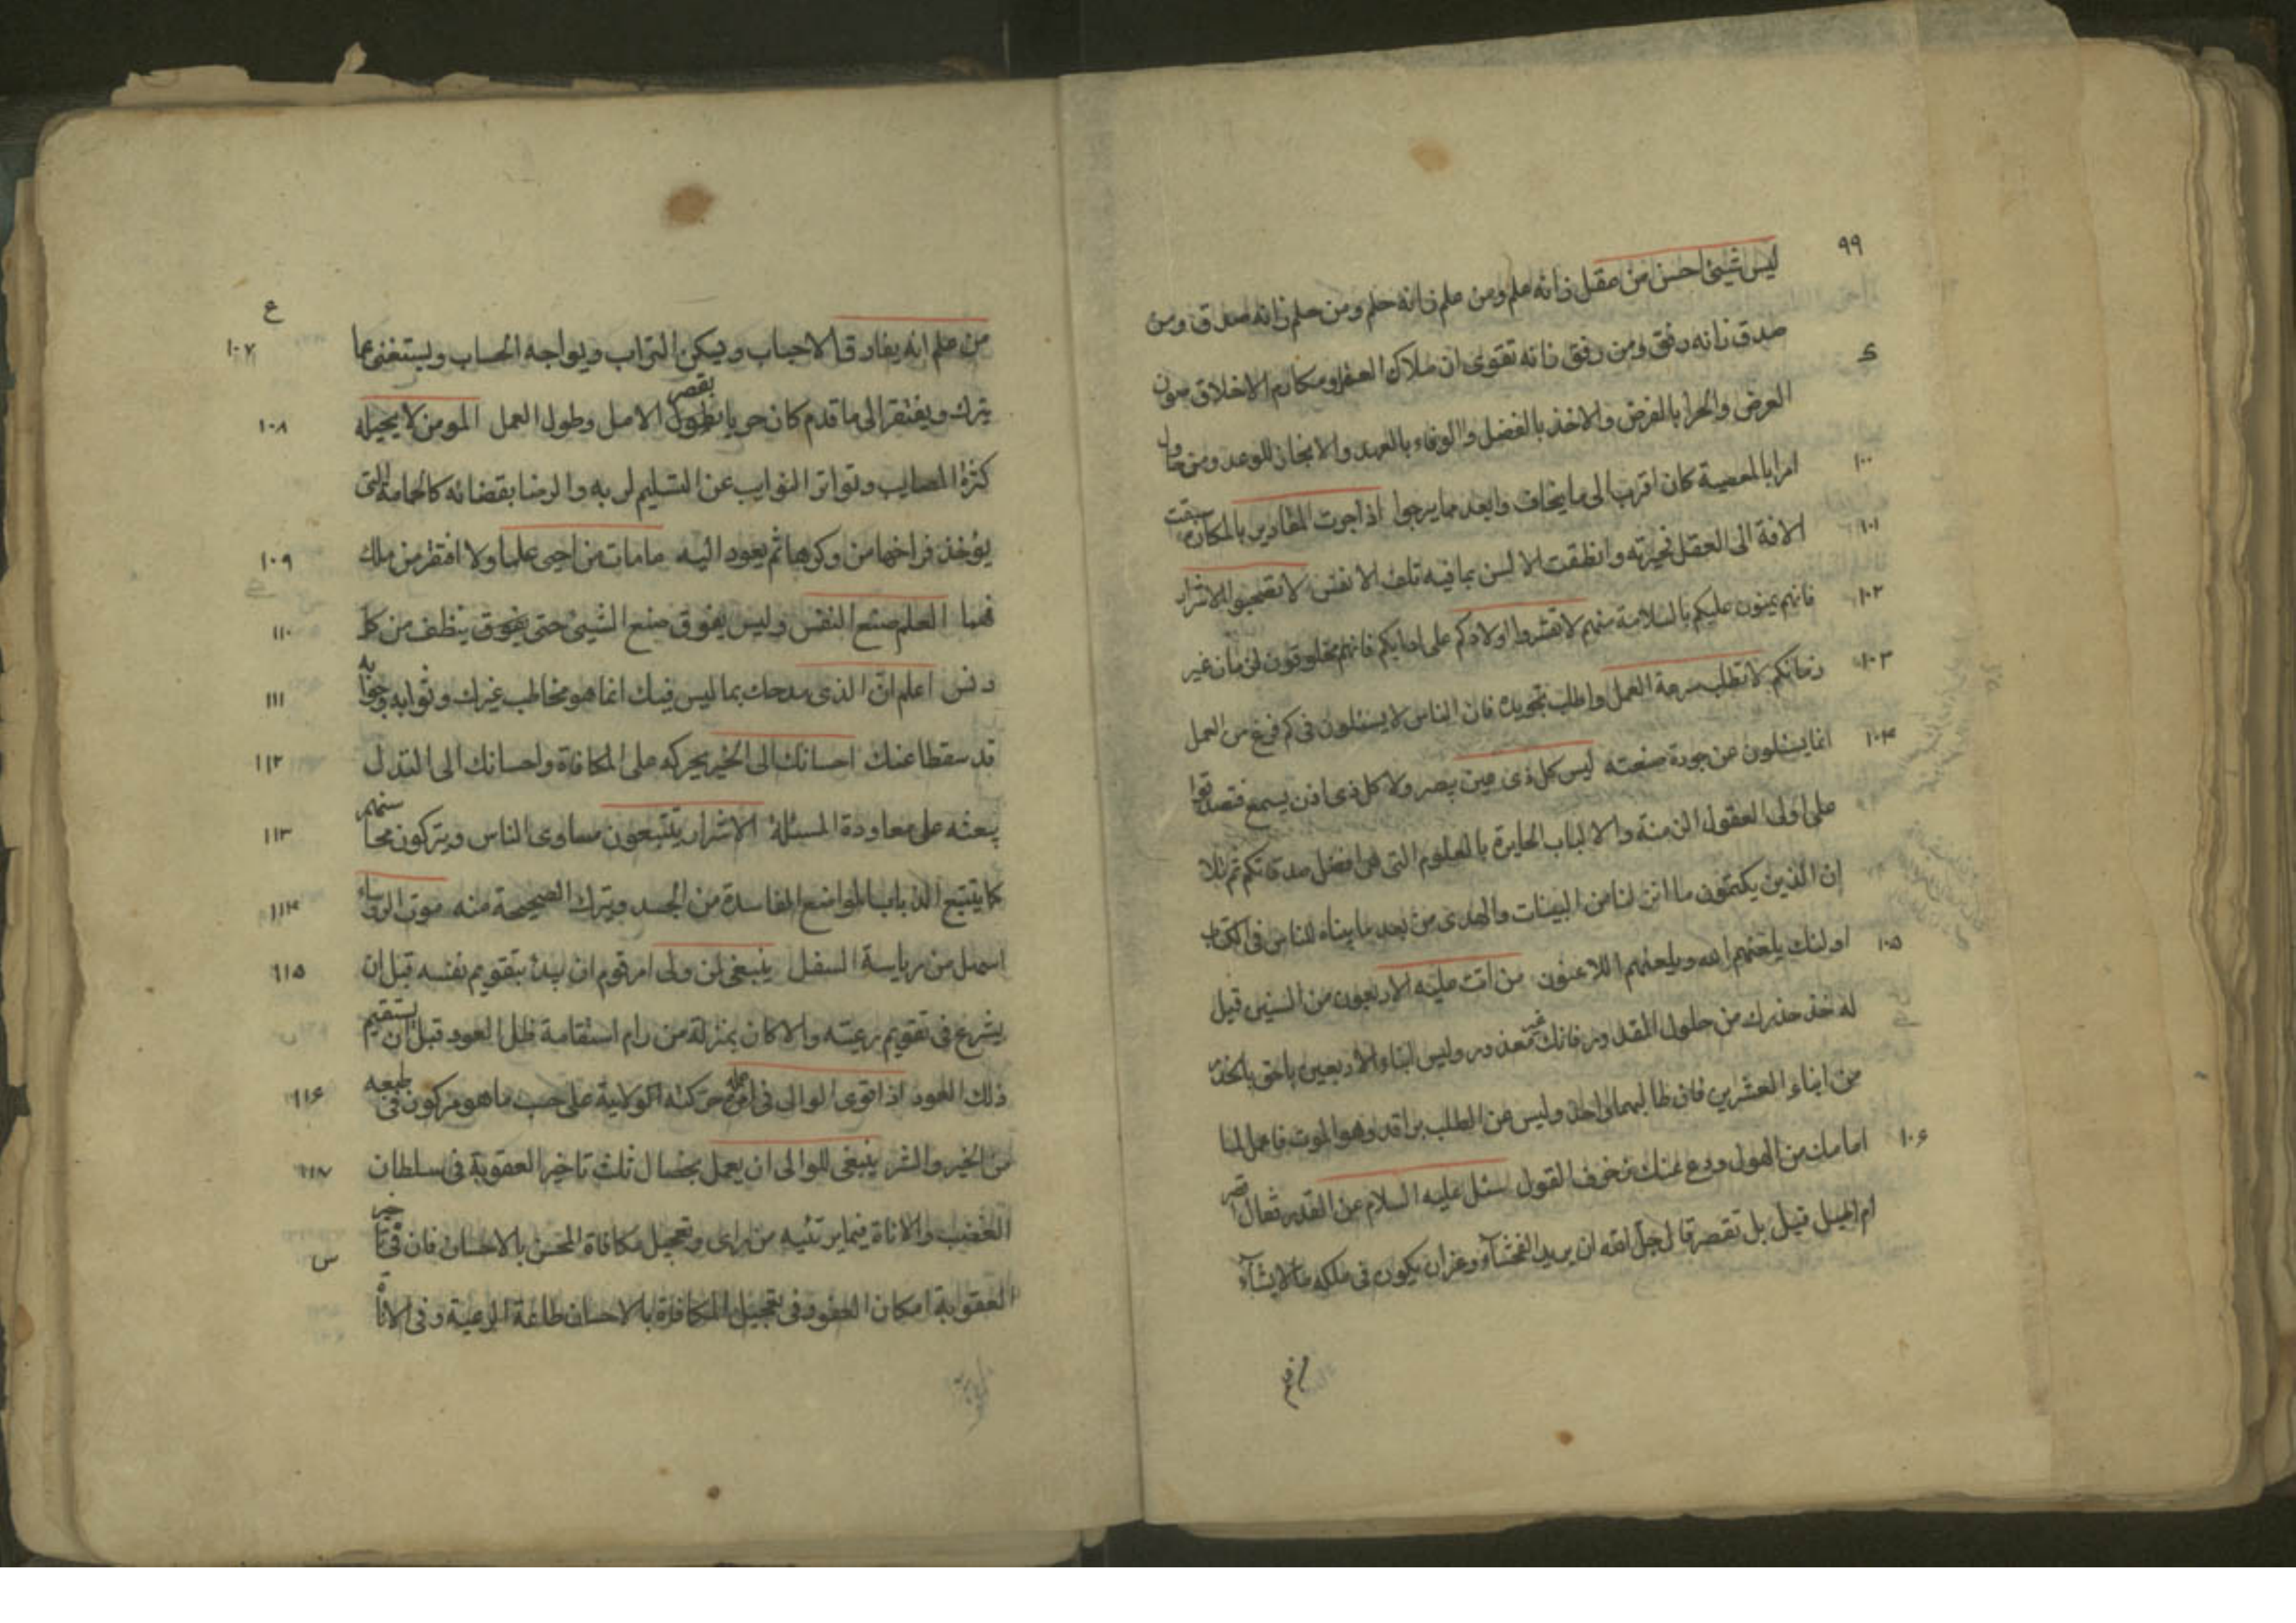 ٩٩
ليس شيئ احسن من عقل زانه علم ومن علم زانه حلم ومن حلم زانه صدق ومن
صدق زانه رفق ومن رفق زانه تقوى ان ملاك العقل ومكارم الاخلاق صون
العرض والجزا بالفرض والاخذ بالفضل والوفاء بالعهد والانجاز للوعد ومن حاول
١٠٠ امرا بالمعصية كان اقرب الى ما يخاف وابعد مما يرجوا اذا جرت المقادير بالمكاره سبقت
١٠١ الافة الى العقل فحيرته وانطقت الالسن بما فيه تلف الانفس لا تصحبوا الاشرار
١٠٢ فانهم يمنون عليكم بالسلامة منهم لا تقسروا اولادكم على ادابكم فانهم مخلوقون لزمان غير
١٠٣ زمانكم لا تطلب سرعة العمل واطلب تجويده فان الناس لا يسئلون فى كم فرغ من العمل
١٠٤ انما يسئلون عن جودة صنعته ليس كل ذى عين يبصر ولا كل ذى اذن يسمع فتصدقوا
على اولى العقول الزمنة والالباب الحايرة بالعلوم التى هى افضل صدقاتكم ثم تلا
ان الذين يكتمون ما انزلنا من البينات والهدى من بعد ما بيناه للناس فى الكتاب
١٠٥ اولئك يلعنهم الله ويلعنهم اللاعنون من اتت عليه الاربعون من السنين قيل
له خذ حذرك من حلول المقدور فانك غير معذور وليس ابناء الاربعين باحق بالحذر
من ابناء العشرين فان طالبهما واحد وليس عن الطلب براقد وهو الموت فاعمل لما
١٠۶ امامك من الهول ودع عنك زخرف القول سئل عليه السلام عن القدر فقال اقصر
ام اطيل قيل بل تقصر قال جل الله ان يريد الفحشآء وعز ان يكون فى ملكه ما لا يشآء
ع
١٠٧ من علم انه يفارق الاحباب ويسكن التراب ويواجه الحساب ويستغنى عما
١٠٨ يترك ويفتقر الى ما قدم كان حريا بقصر الامل وطول العمل المومن لا يحيله
كثرة المصايب وتواتر النوايب عن التسليم لربه والرضا بقضائه كالحمامة التى
١٠٩ يؤخذ فراخها من وكرها ثم يعود اليه ما مات من احيى علما ولا افتقر من ملك
١١٠ فهما العلم صنع النفس وليس يفوق صنع الشيئ حتى يفوق ينظف من كل
١١١ دنس اعلم ان الذى مدحك بما ليس فيك انما هو مخاطب غيرك وثوابه وجزائه
١١٢ قد سقطا عنك احسانك الى الخير يحركه على المكافاة واحسانك الى النذل
١١٣ يبعثه على معاودة المسئلة الاشرار يتتبعون مساوى الناس ويتركون محاسنهم
١١٤ كما يتتبع الذباب المواضع الفاسدة من الجسد ويترك الصحيحة منه موت الروساء
١١٥ اسهل من رياسة السفل ينبغى لمن ولى امر قوم ان يبدئ بتقويم نفسه قبل ان
يشرع فى تقويم رعيته والا كان بمنزلة من رام استقامة ظل العود قبل ان يستقيم
١١۶ ذلك العود اذا قوى الوالى فى عمله حركته الولاية على حسب ما هو مركوز فى طبعه
١١٧ من الخير والشر ينبغى للوالى ان يعمل بخصال ثلث تاخير العقوبة فى سلطان
الغضب والاناة فيما يرتئيه من راى وتعجيل مكافاة المحسن بالاحسان فان فى تاخير
العقوبة امكان العفو وفى تعجيل المكافاة بالاحسان طاعة الرعية وفى الاناة